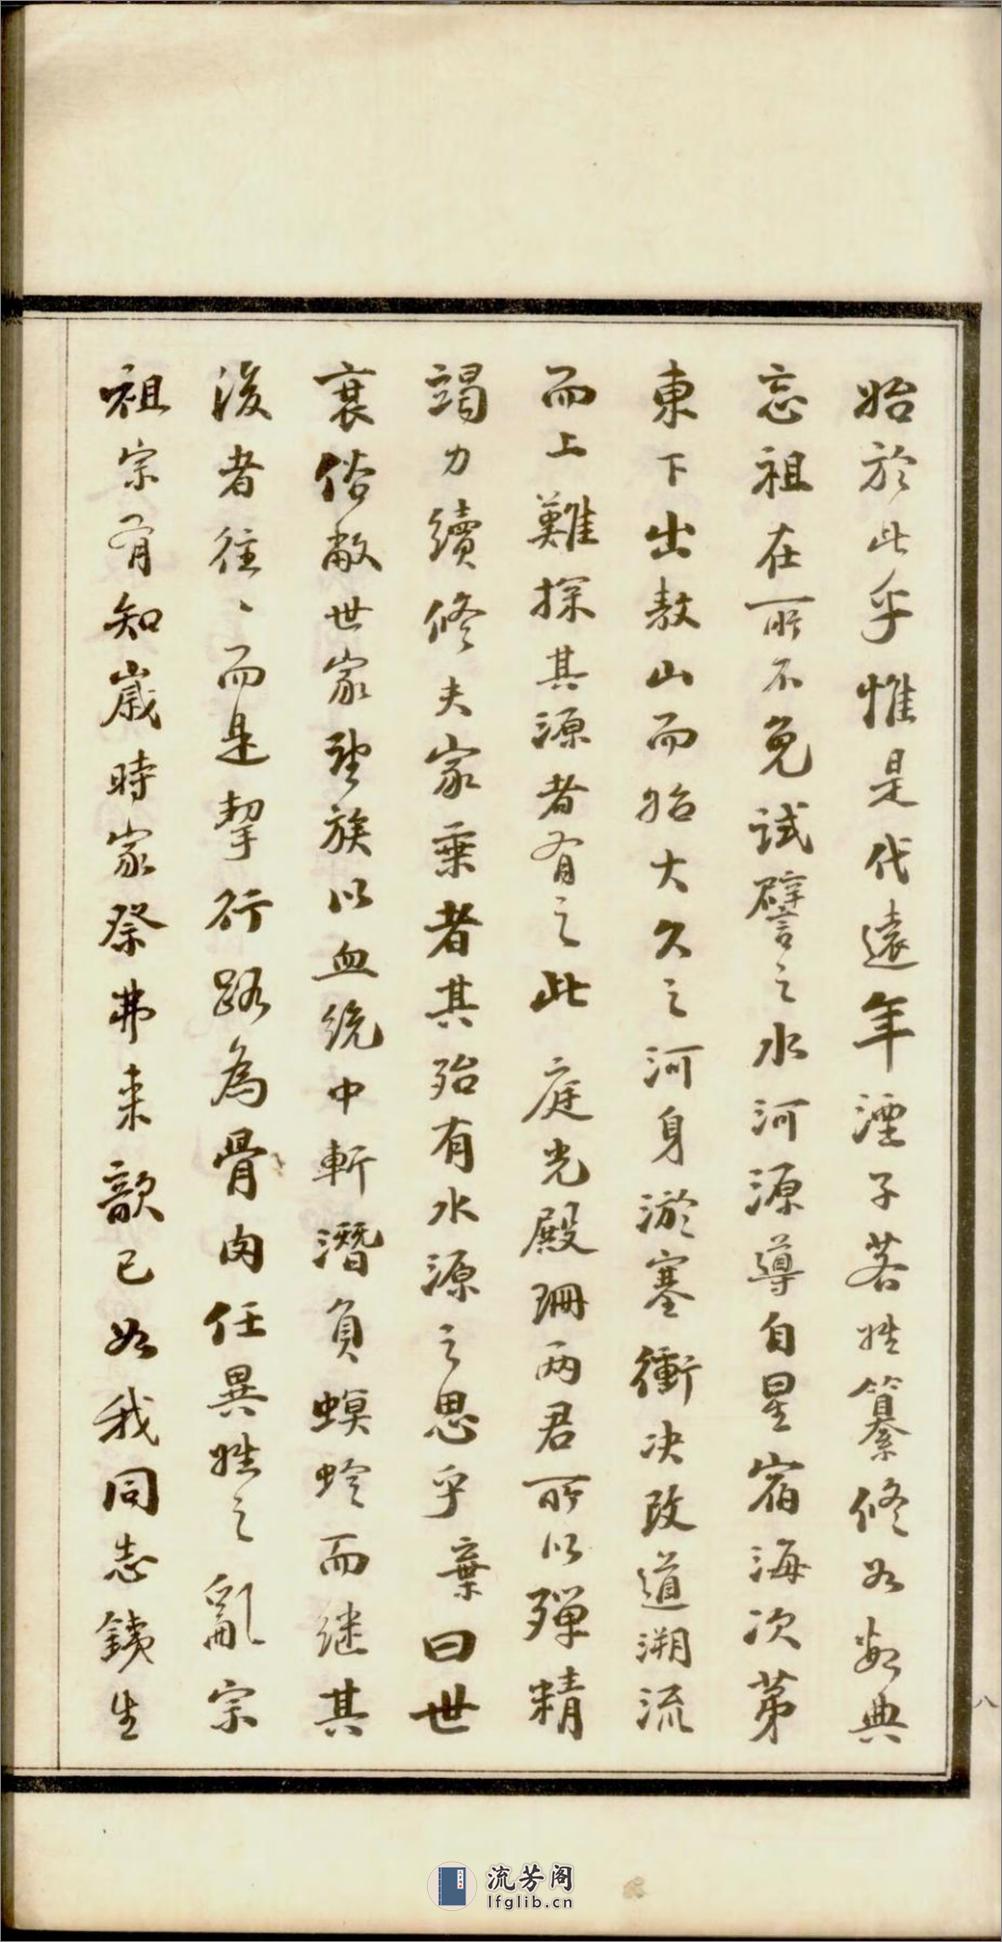 始於此乎惟是代遠年湮子若姓纂修如數典
忘祖在所不免試譬之水河源導自星宿海次第
東下出敖山而始大久之河身淤塞衝决改道溯流
而上難探其源者有之此庭光殿珊兩君所以殫精
竭力續修夫家乘者其殆有水源之思乎棄曰世
衰俗敝世家望族以血統中斬潛負螟蛉而继其
後者往、而是挈行路為骨肉任異姓之亂宗
祖宗有知歲時家祭弗来歆已如我同志錢生
八
流芳阁
lfglib.cn